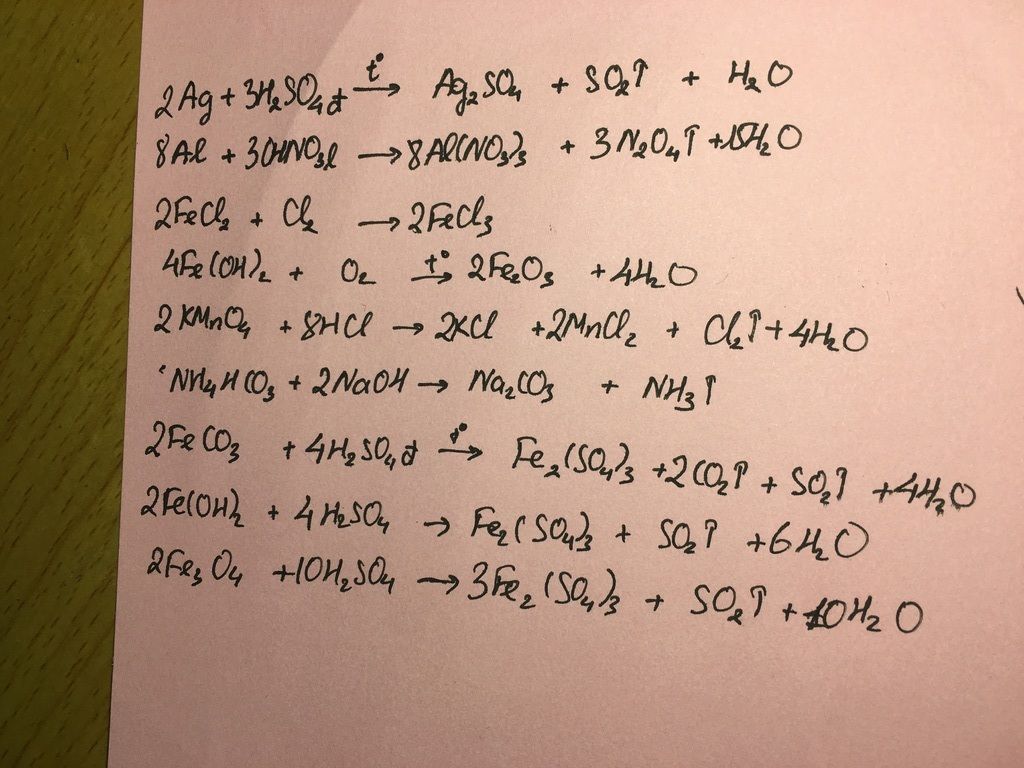 2Ag + 3H₂SO₄đ –t°→ Ag₂SO₄ + SO₂↑ + H₂O
8Al + 30HNO₃l → 8Al(NO₃)₃ + 3N₂O₄↑ + 15H₂O
2FeCl₂ + Cl₂ → 2FeCl₃
4Fe(OH)₂ + O₂ –t°→ 2Fe₂O₃ + 4H₂O
2KMnO₄ + 8HCl → 2KCl + 2MnCl₂ + Cl₂↑ + 4H₂O
NH₄HCO₃ + 2NaOH → Na₂CO₃ + NH₃↑
2FeCO₃ + 4H₂SO₄đ –t°→ Fe₂(SO₄)₃ + 2CO₂↑ + SO₂↑ + 4H₂O
2Fe(OH)₂ + 4H₂SO₄ → Fe₂(SO₄)₃ + SO₂↑ + 6H₂O
2Fe₃O₄ + 10H₂SO₄ → 3Fe₂(SO₄)₃ + SO₂↑ + 10H₂O